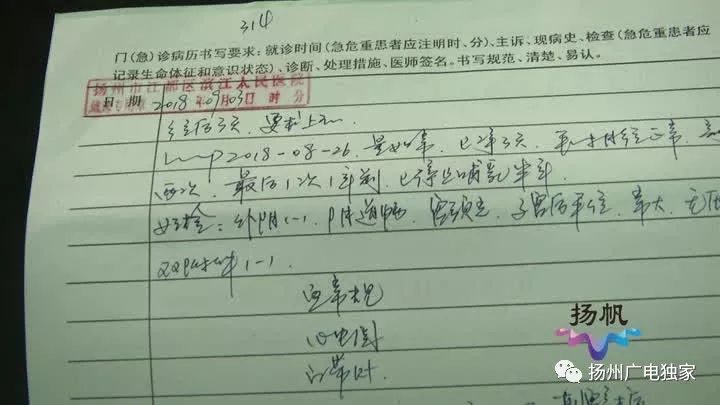 314
门(急)诊病历书写要求：就诊时间(急危重患者应注明时、分)、主诉、现病史、检查(急危重患者应
记录生命体征和意识状态)、诊断、处理措施、医师签名。书写规范、清楚、易认。
扬州市江都区滨江人民医院
日期 2018年09月03日 时 分
经后3天，要求上环
Lmp2018-08-26，量如常，已净3天，平时月经正常，
两次，最后1次1年前，已停止哺乳半年
妇检：外阴(-)，阴道畅，宫颈光，子宫后平位，常大，无压
双附件(-)
血常规
心电图
白带
扬帆
扬州广电独家